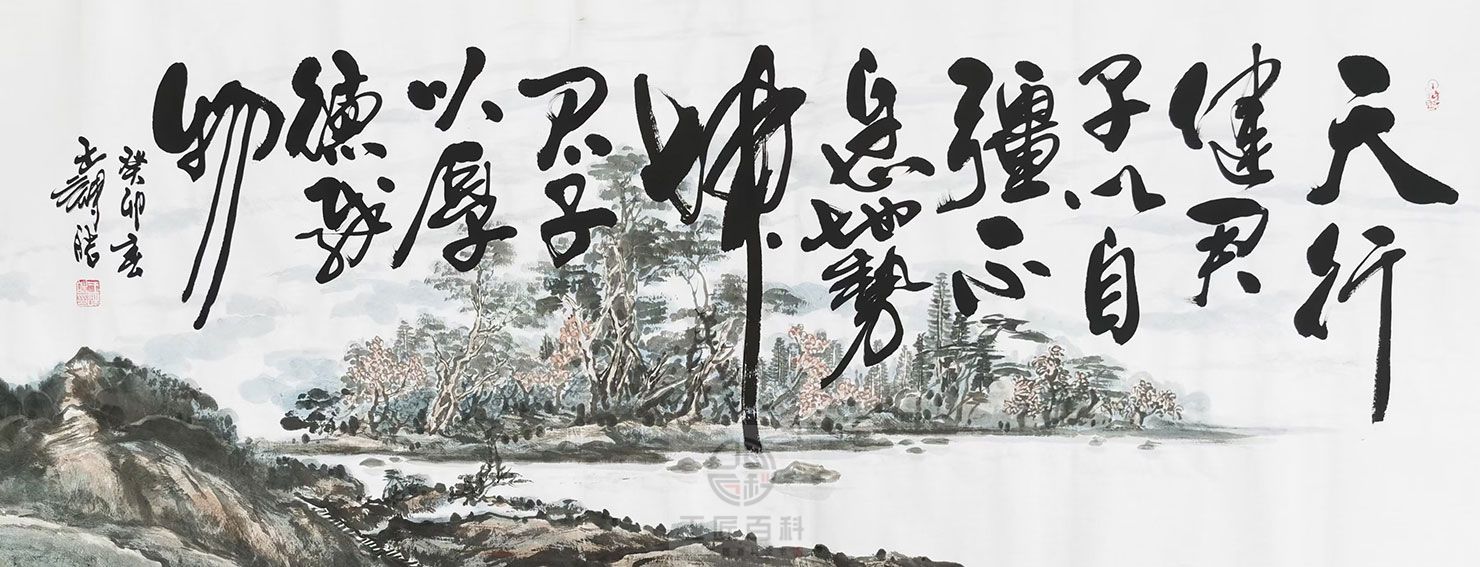 天行
健君
子以自
彊不
息地勢
坤
君子
以厚
德載
物
癸卯
工匠百科